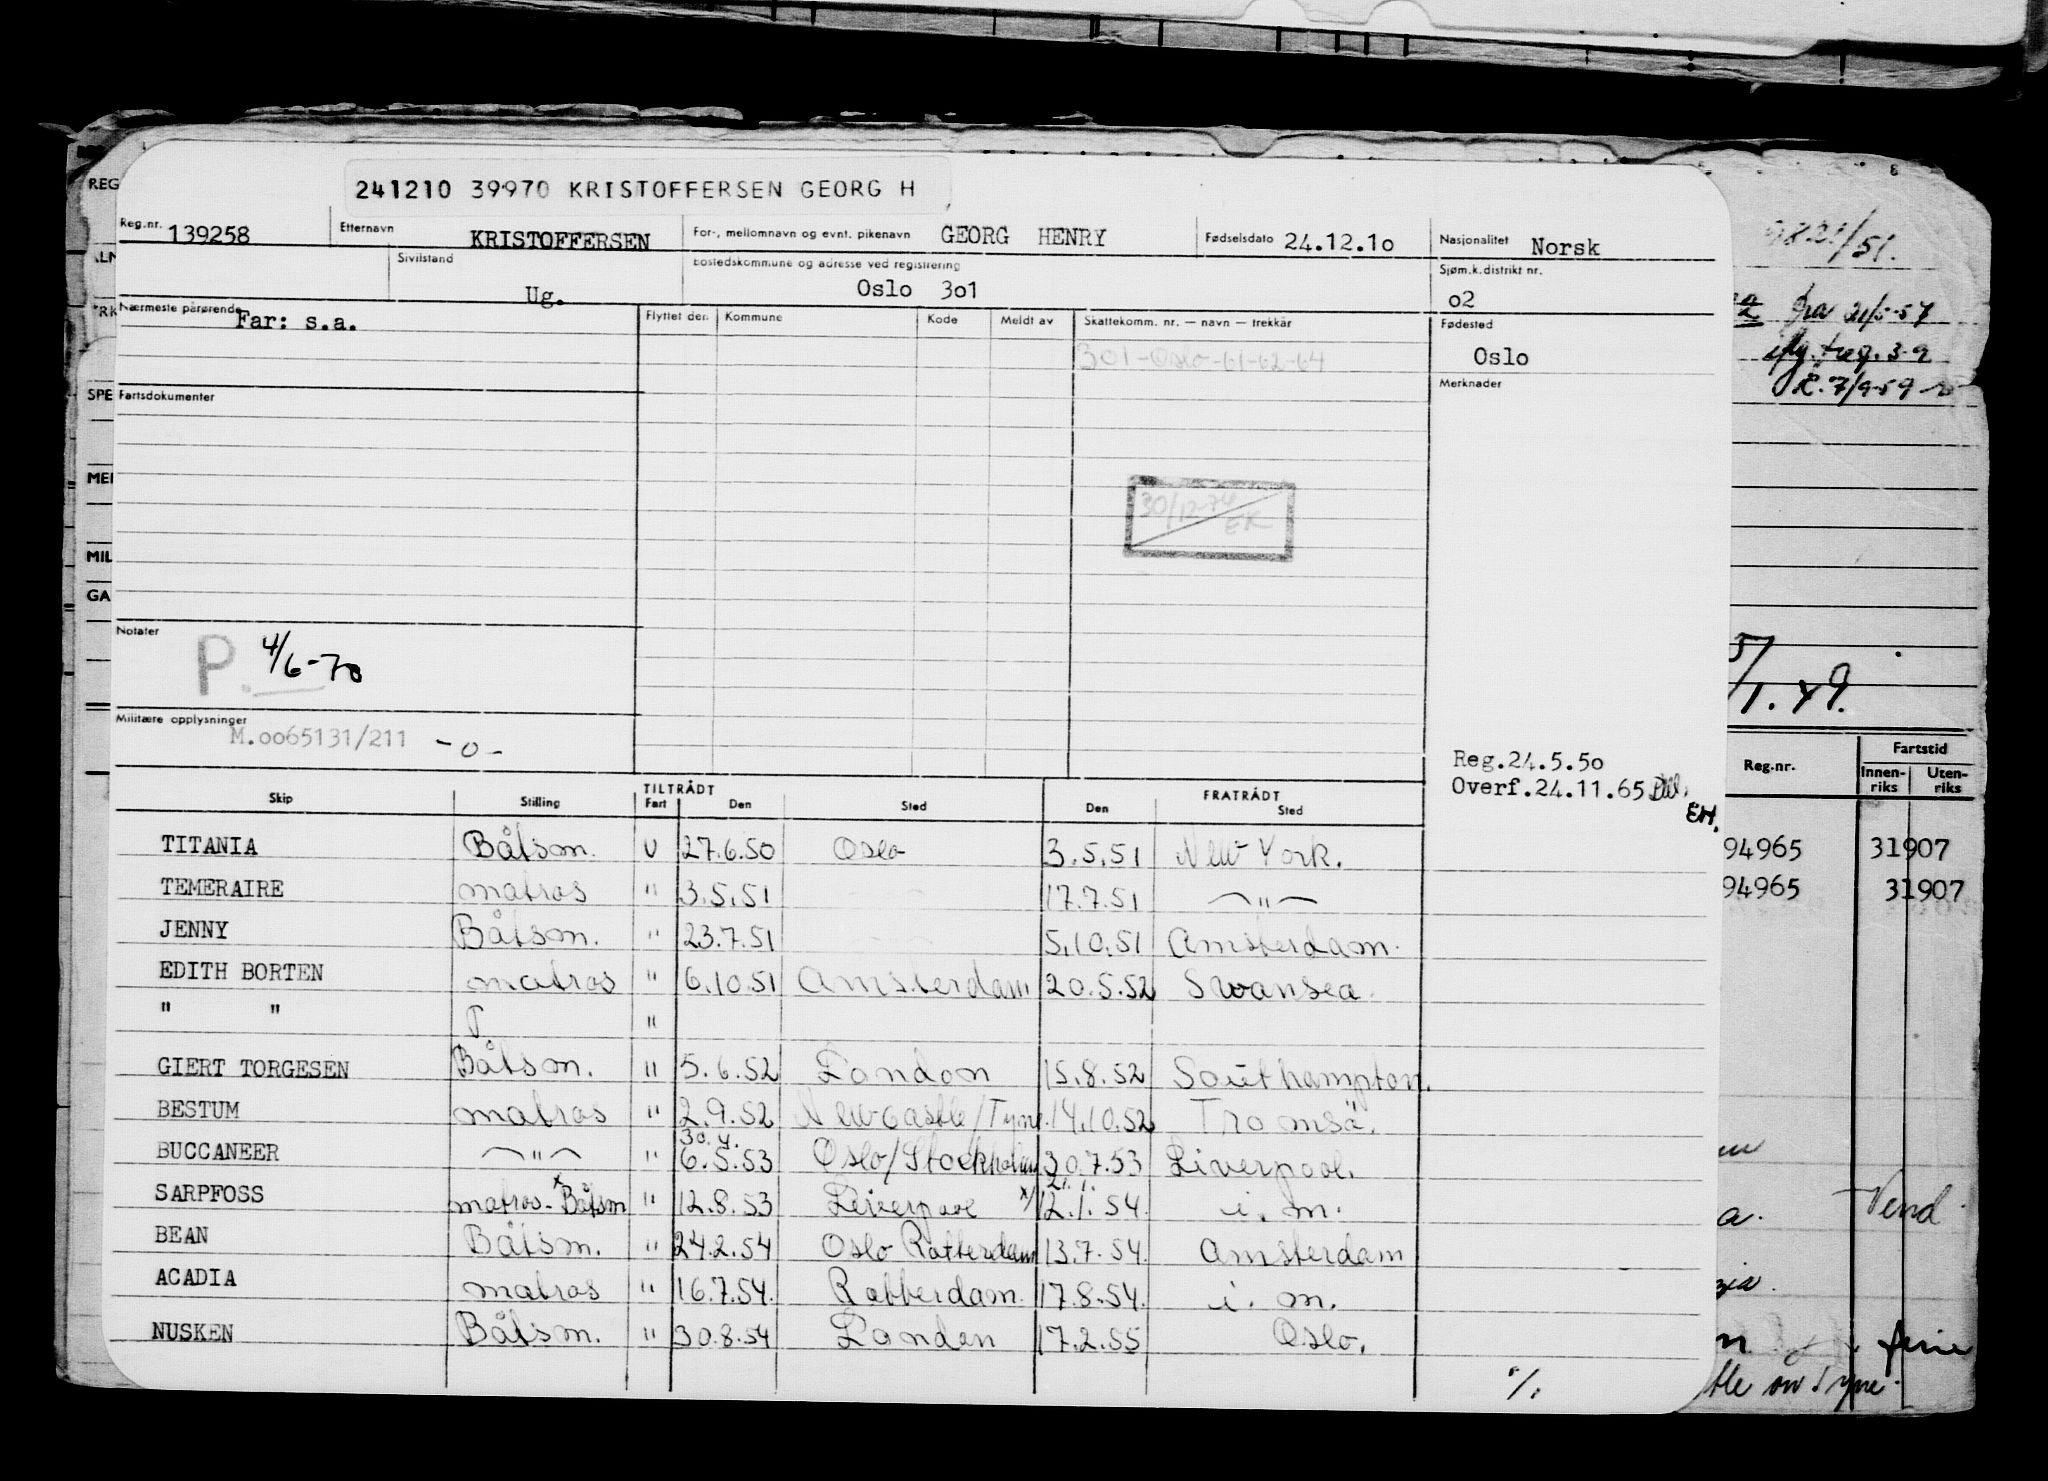 241210 39970 KRISTOFFERSEN GEORG H
Reg.nr. 139258 Etternavn KRISTOFFERSEN For-, mellomnavn og evnt. pikenavn GEORG HENRY Fødselsdato 24.12.1o Nasjonalitet Norsk
Sivilstand Ug. Bostedskommune og adresse ved registrering Oslo 3o1 Sjøm.k.distrikt nr. o2
Nærmeste pårørende Far: s.a. Flyttet den Kommune Kode Meldt av Skattekomm. nr. — navn — trekkår Fødested Oslo
301-Oslo-61-62-64
Fartsdokumenter Merknader
30/12-74 EK
Notater P. 4/6-70
Militære opplysninger M.oo65131/211 -o-
Reg.24.5.5o
Overf.24.11.65
EH.
TILTRÅDT FRATRÅDT
Skip Stilling Fart Den Sted Den Sted
TITANIA Båtsm. U 27.6.50 Oslo 3.5.51 New York.
TEMERAIRE matros " 3.5.51 17.7.51 — " —
JENNY Båtsm. " 23.7.51 5.10.51 Amsterdam.
EDITH BORTEN matros " 6.10.51 Amsterdam 20.5.52 Swansea.
" " "
GIERT TORGESEN Båtsm. " 5.6.52 London 15.8.52 Southampton.
BESTUM matros " 2.9.52 Newcastle/Tyne. 14.10.52 Tromsö.
30.4.
BUCCANEER — " — " 6.5.53 Oslo/Stockholm 30.7.53 Liverpool.
21.1.
SARPFOSS matros-x Båtsm " 12.8.53 Liverpool x/ 12.1.54. i. m.
BEAN Båtsm. " 24.2.54 Oslo Rotterdam 13.7.54. Amsterdam
ACADIA matros " 16.7.54. Rotterdam. 17.8.54. i. m.
NUSKEN Båtsm. " 30.8.54 London 17.2.55 Oslo.
%.
REG
SPE
MIL
GA
/51.
fra 21/5-57
7/9-59
/1.49.
Reg.nr. Fartstid
Innen-riks Uten-riks
94965 31907
94965 31907
Vend
a.